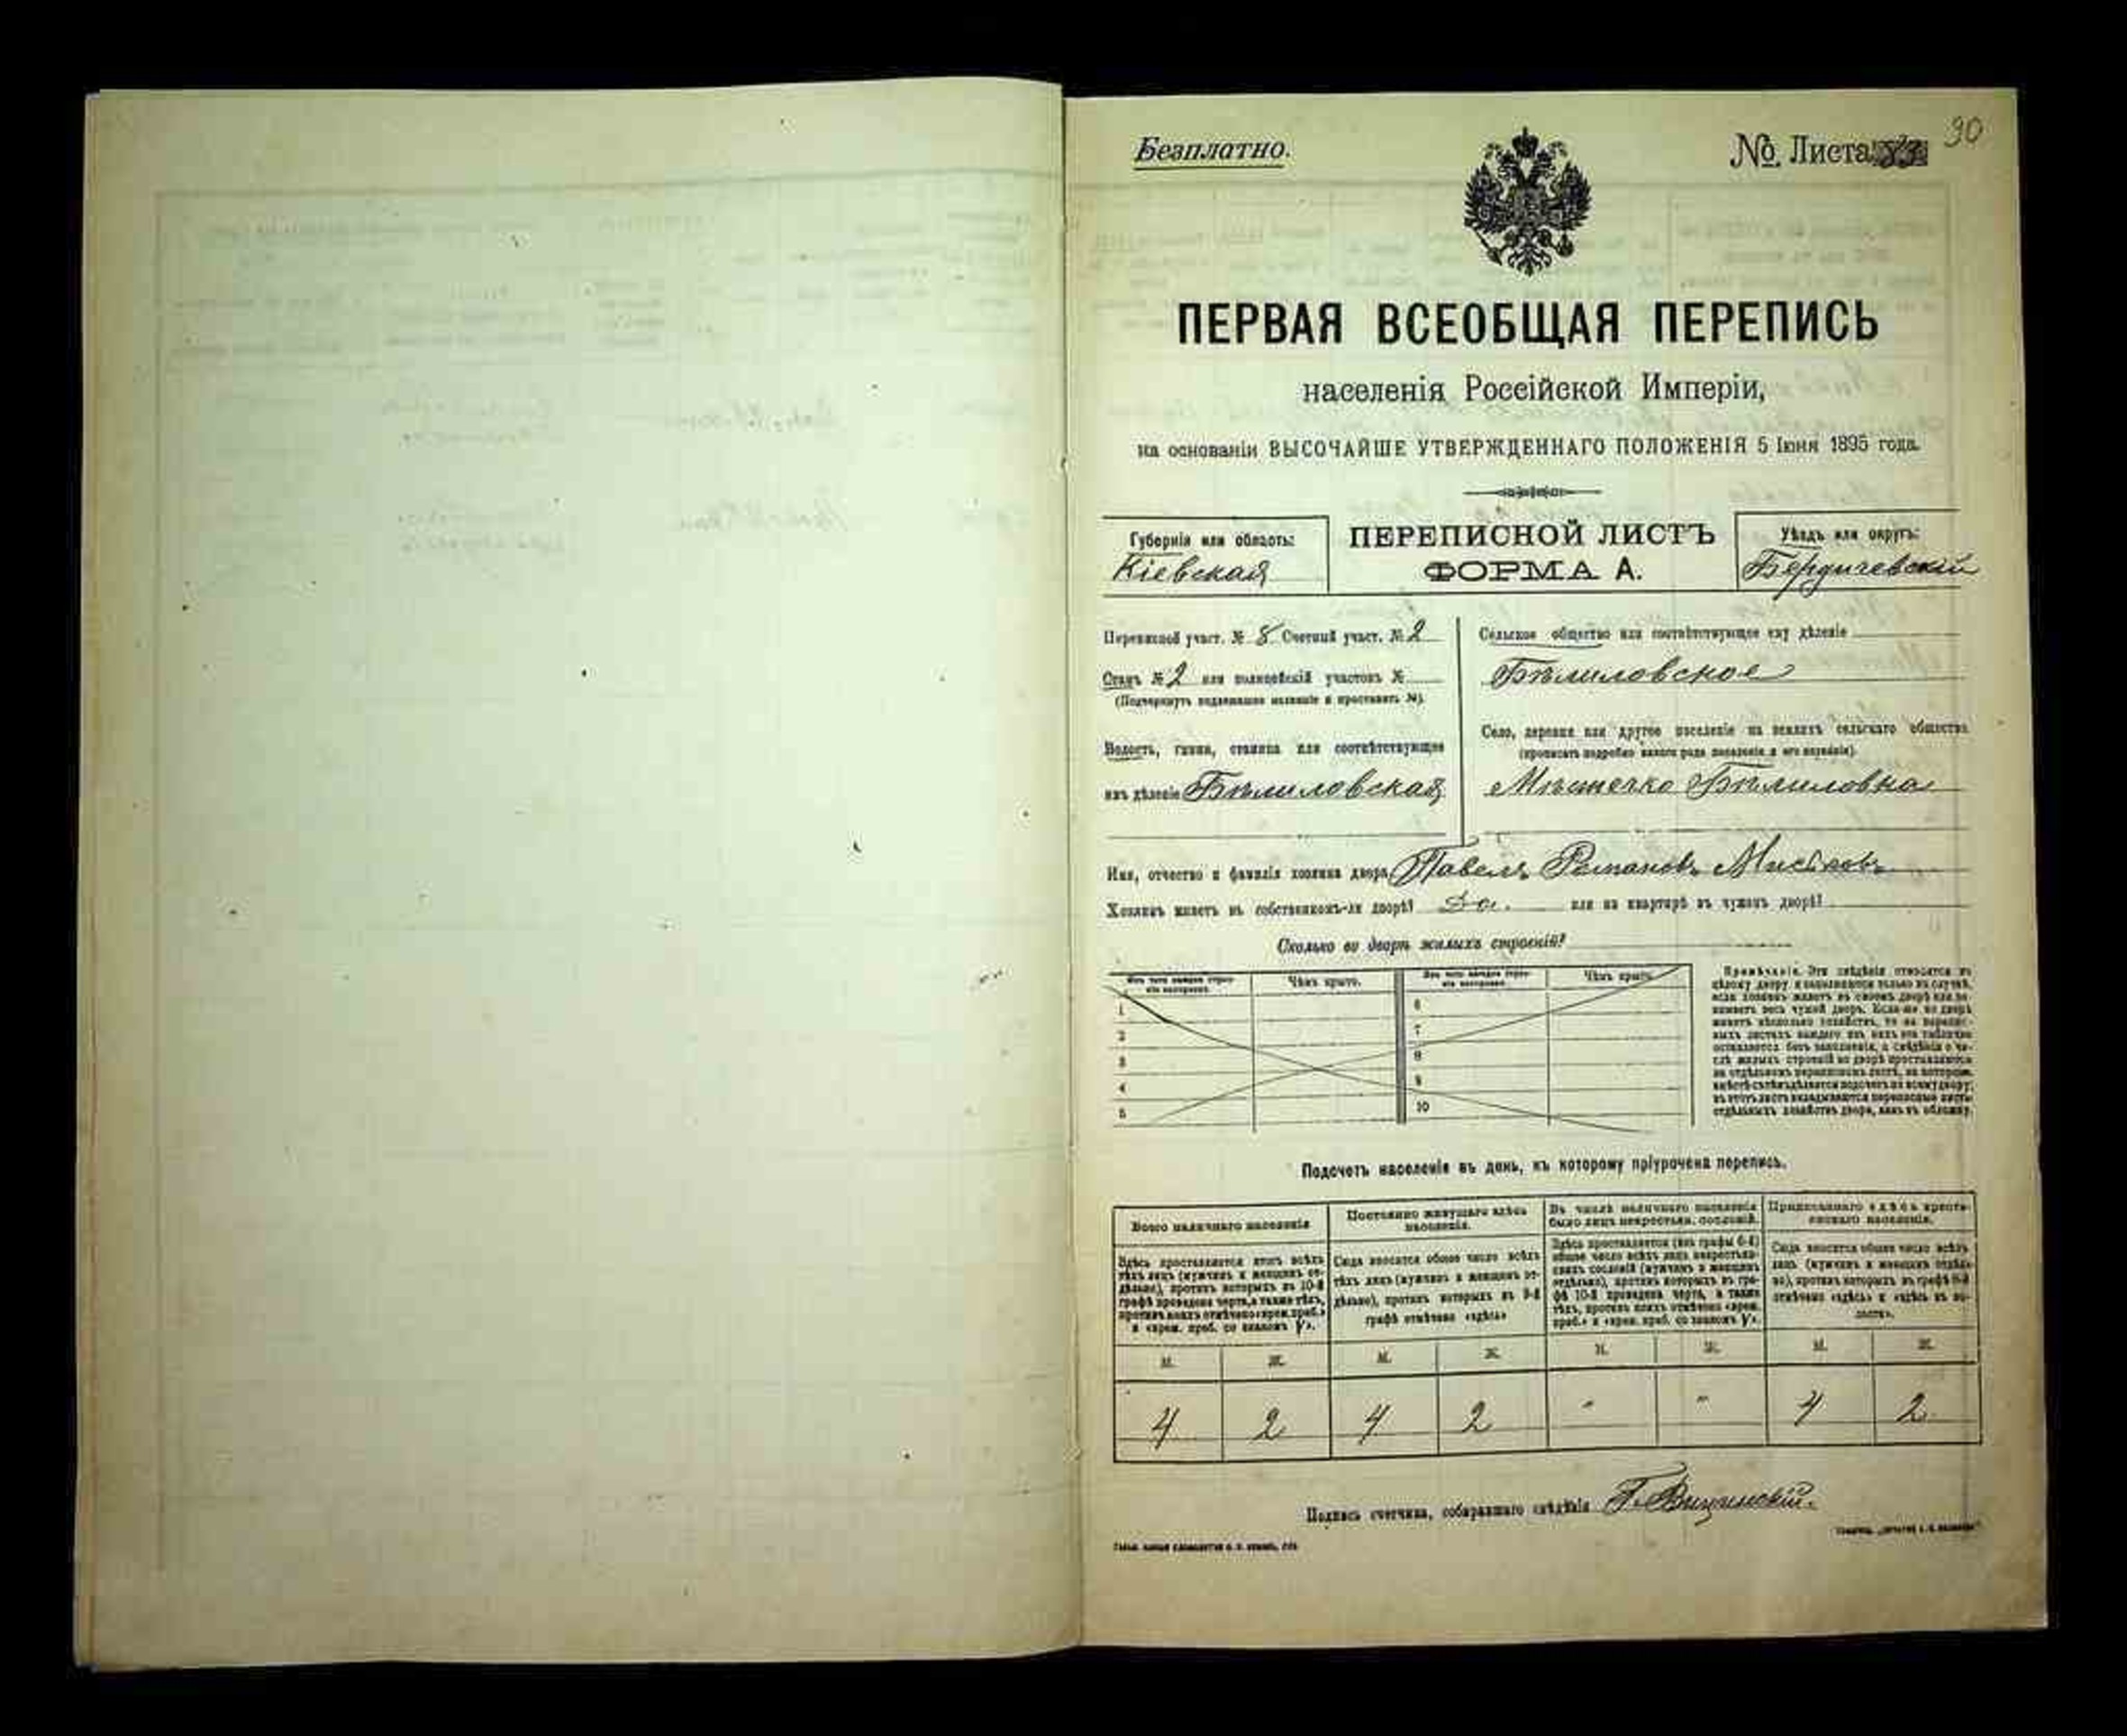 Безплатно.
№ Листа 90
ПЕРВАЯ ВСЕОБЩАЯ ПЕРЕПИСЬ
населенія Россійской Имперіи,
на основаніи ВЫСОЧАЙШЕ УТВЕРЖДЕННАГО ПОЛОЖЕНІЯ 5 Іюня 1895 года.
Губернія или область:
Кіевская
ПЕРЕПИСНОЙ ЛИСТЪ
ФОРМА А.
Уѣздъ или округъ:
Бердичевскій
Переписной участ. № 8 Счетный участ. № 2
Станъ № 2 или полицейскій участокъ №
(Подчеркнуть подлежащее названіе и проставить №).
Волость, гмина, станица или соотвѣтствующее
имъ дѣленіе Бѣлиловская
Сельское общество или соотвѣтствующее ему дѣленіе
Бѣлиловское
Село, деревня или другое поселеніе на земляхъ сельскаго общества
(прописать подробно какого рода поселеніе и его названіе).
Мѣстечко Бѣлиловка
Имя, отчество и фамилія хозяина двора Павелъ Романовъ
Хозяинъ живетъ въ собственномъ-ли дворѣ? Да. или на квартирѣ въ чужомъ дворѣ?
Сколько во дворѣ жилыхъ строеній?
Изъ чего каждое строеніе построено.
Чѣмъ крыто.
Изъ чего каждое строеніе построено.
Чѣмъ крыто.
1
2
3
4
5
6
7
8
9
10
Примѣчаніе. Эти свѣдѣнія относятся къ
цѣлому двору и заполняются только въ случаѣ,
если хозяинъ живетъ въ своемъ дворѣ или занимаетъ
весь чужой дворъ. Если-же во дворѣ
живетъ нѣсколько хозяйствъ, то на переписныхъ
листахъ каждаго изъ нихъ эта табличка
оставляется безъ заполненія, а свѣдѣнія о числѣ
жилыхъ строеній во дворѣ проставляются
на отдѣльномъ переписномъ листѣ, на которомъ
вмѣстѣ съ тѣмъ дѣлается подсчетъ по всему двору;
въ этотъ листъ вкладываются переписные листы
отдѣльныхъ хозяйствъ двора, какъ въ обложку.
Подсчетъ населенія въ день, къ которому пріурочена перепись.
Всего наличнаго населенія
Постоянно живущаго здѣсь населенія.
Въ числѣ наличнаго населенія было лицъ некрестьян. сословій.
Приписаннаго здѣсь крестьянскаго населенія.
Здѣсь проставляется итогъ всѣхъ
тѣхъ лицъ (мужчинъ и женщинъ отдѣльно),
противъ которыхъ въ 10-й
графѣ проведена черта, а также тѣхъ,
противъ коихъ отмѣчено «врем. преб.»
и «врем. преб. со знакомъ V».
Сюда вносится общее число всѣхъ
тѣхъ лицъ (мужчинъ и женщинъ отдѣльно),
противъ которыхъ въ 9-й
графѣ отмѣчено «здѣсь»
Здѣсь проставляется (изъ графы 6-й)
общее число всѣхъ лицъ некрестьянскихъ
сословій (мужчинъ и женщинъ
отдѣльно), противъ которыхъ въ графѣ
10-й проведена черта, а также
тѣхъ, противъ коихъ отмѣчено «врем.
преб.» и «врем. преб. со знакомъ V».
Сюда вносится общее число всѣхъ
лицъ (мужчинъ и женщинъ отдѣльно),
противъ которыхъ въ графѣ 8-й
отмѣчено «здѣсь» и «здѣсь въ волости».
М. Ж. М. Ж. М. Ж. М. Ж.
4 2 4 2 " " 4 2
Подпись счетчика, собиравшаго свѣдѣнія